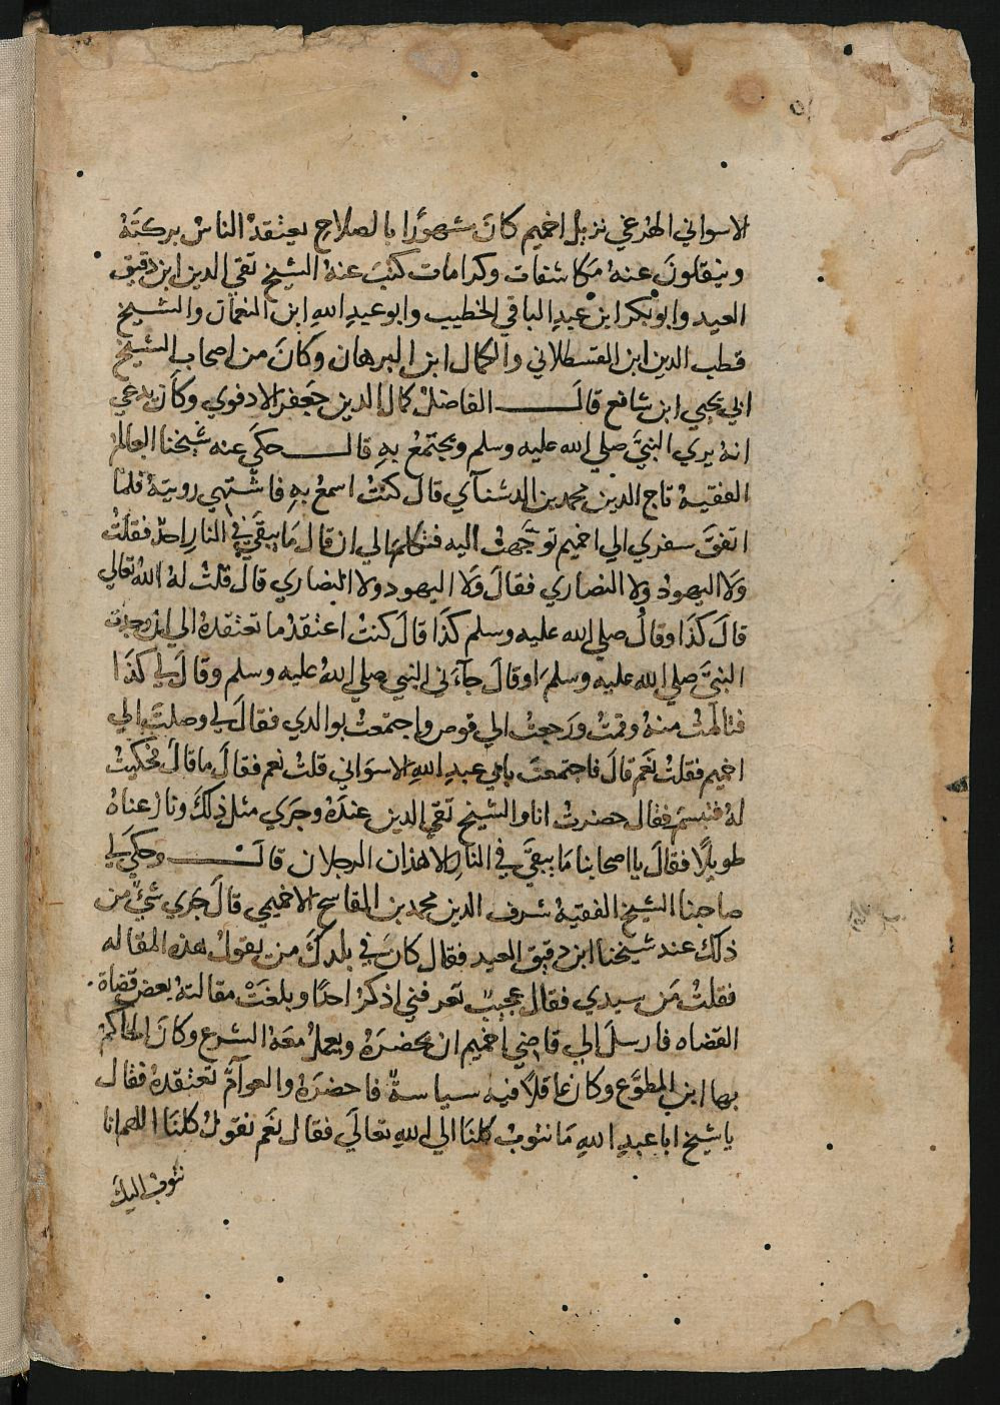 الاسواني الهرغي نزيل اخميم كانَ مشهورًا بالصلاح يعتقدُ الناسُ بركتَهُ
وينقلونَ عنهُ مكاشفات وكرامات كتبَ عنهُ الشيخ تقي الدين ابن دقيق
العيد وابو بكر ابن عبد الباقي الخطيب وابو عبد الله ابن النعمان والشيخ
قطب الدين ابن القسطلاني والكمال ابن البرهان وكانَ من اصحاب الشيخ
ابي يحيي ابن شافع قالــــ الفاضلُ كمال الدين جعفر الادفوي وكان يدعي
انهُ يري النبيَّ صلي الله عليه وسلم ويجتمعُ بهِ قالــــ حكَي عنه شيخنا العالمُ
الفقيهُ تاج الدين محمد بن الدشنآي قال كنتُ اسمعُ بهِ فاشتهي رويتهُ فلما
اتفقَ سفري الي اخميم توجَّهتُ اليه فتكلم الي ان قال مَا يبقَي في النارِ احدٌ فقلتُ
وَلا اليهودُ ولا النصاري فقالَ وَلا اليهود ولا النصاري قالَ قلتُ لهُ اللهُ تعالي
قالَ كذَا وقالَ صلي الله عليه وسلم كذَا قالَ كنتُ اعتقدُ ما تعتقدهُ الي ان وجدت
النبيَّ صلي الله عليه وسلم اوقالَ جآءَني النبي صلي اللهُ عليه وسلم وقالَ لي كذَا
فتالمتُ منهُ وقمتُ ورَجعتُ الي قوص واجتمعتُ بوالدي فقالَ لي وصلتَ الي
اخميم فقلتُ نعَم قالَ فاجتمعتَ بابي عبدِ اللهِ الاسوَاني قلتُ نعم فقالَ ما قالَ فحكيتُ
لهُ فتبسمَ فقال حضرتُ انا والشيخ تقي الدين عندَهُ وجرَي مثل ذلكَ ونازعناهُ
طويلًا فقالَ يا اصحابنا مَا يبقَي في النارِ الا هذان الرجلان قالَــــ وحكَي لي
صاحبنا الشيخ الفقيهُ شرف الدين محمد بن القاسم الاخميمي قالَ جري شيءٌ من
ذلك عند شيخنا ابن دقيق العيد فقال كانَ في بلدكَ من يقولُ هذه المقاله
فقلتُ مَن سيدي فقال عجيبٌ تعرفني اذكرُ احدًا وبلغَتْ مقالتهُ بعضَ قضاة
القضاه فارسلَ الي قاضي اخميم ان يحضرَهُ ويعملُ معَهُ الشرع وكانَ الحَاكمُ
بها ابن المطوَّع وكان عَاقلاً فيه سياسةٌ فاحضرَهُ والعوآمُّ تعتقدهُ فقال
يا شيخ ابا عبدِ اللهِ مَا نتوبُ كلنَا الي اللهِ تعالَي فقال نعَم نقولُ كلنَا اللهم انا
نتوبُ اليكَ